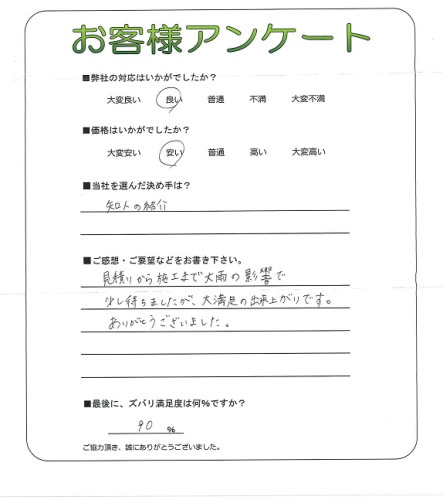 お客様アンケート
■弊社の対応はいかがでしたか？
大変良い 良い 普通 不満 大変不満
■価格はいかがでしたか？
大変安い 安い 普通 高い 大変高い
■当社を選んだ決め手は？
知人の紹介
■ご感想・ご要望などをお書き下さい。
見積りから施工まで大雨の影響で
少し待ちましたが、大満足の出来上がりです。
ありがとうございました。
■最後に、ズバリ満足度は何%ですか？
90 %
ご協力頂き、誠にありがとうございました。